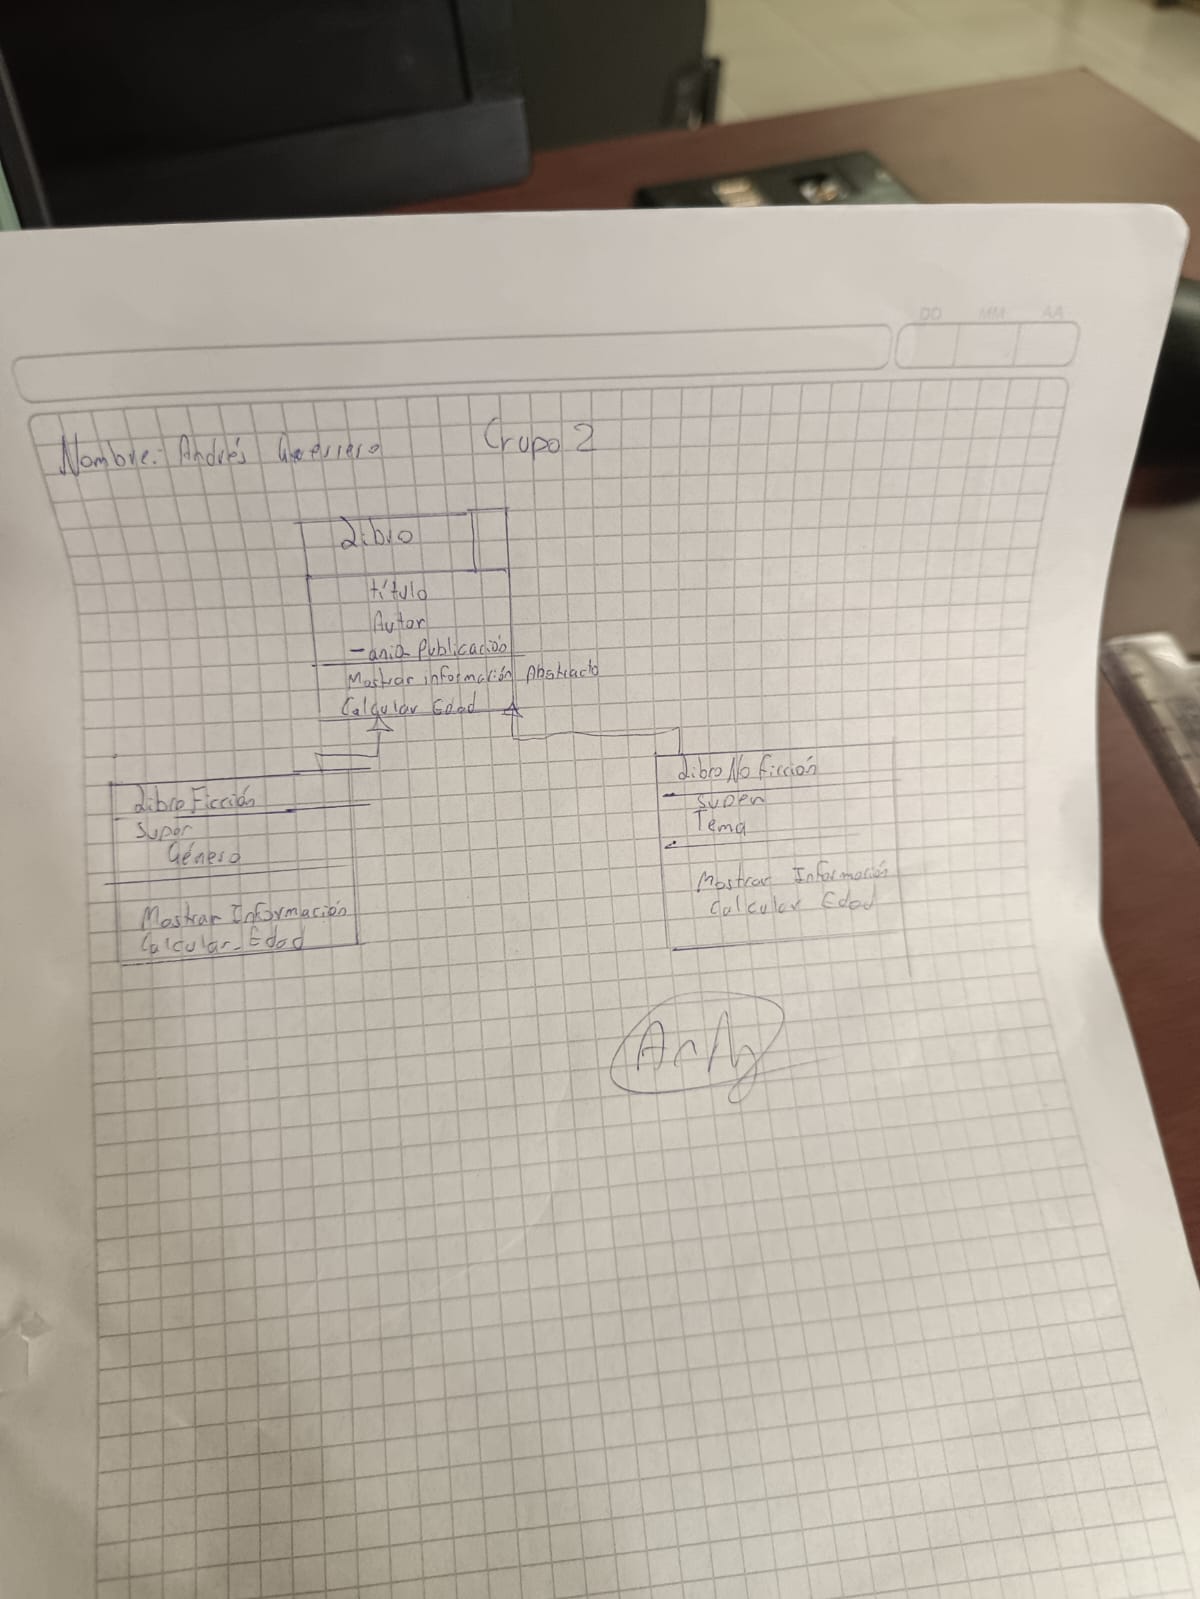 DD MM AA
Nombre: Andrés Guerrero Grupo 2
Libro
título
Autor
Publicación
Mostrar información Abstracto
Calcular Edad
Libro Ficción
Super
Género
Mostrar Información
Calcular_Edad
Libro No Ficción
Super
Tema
Mostrar Información
Calcular Edad